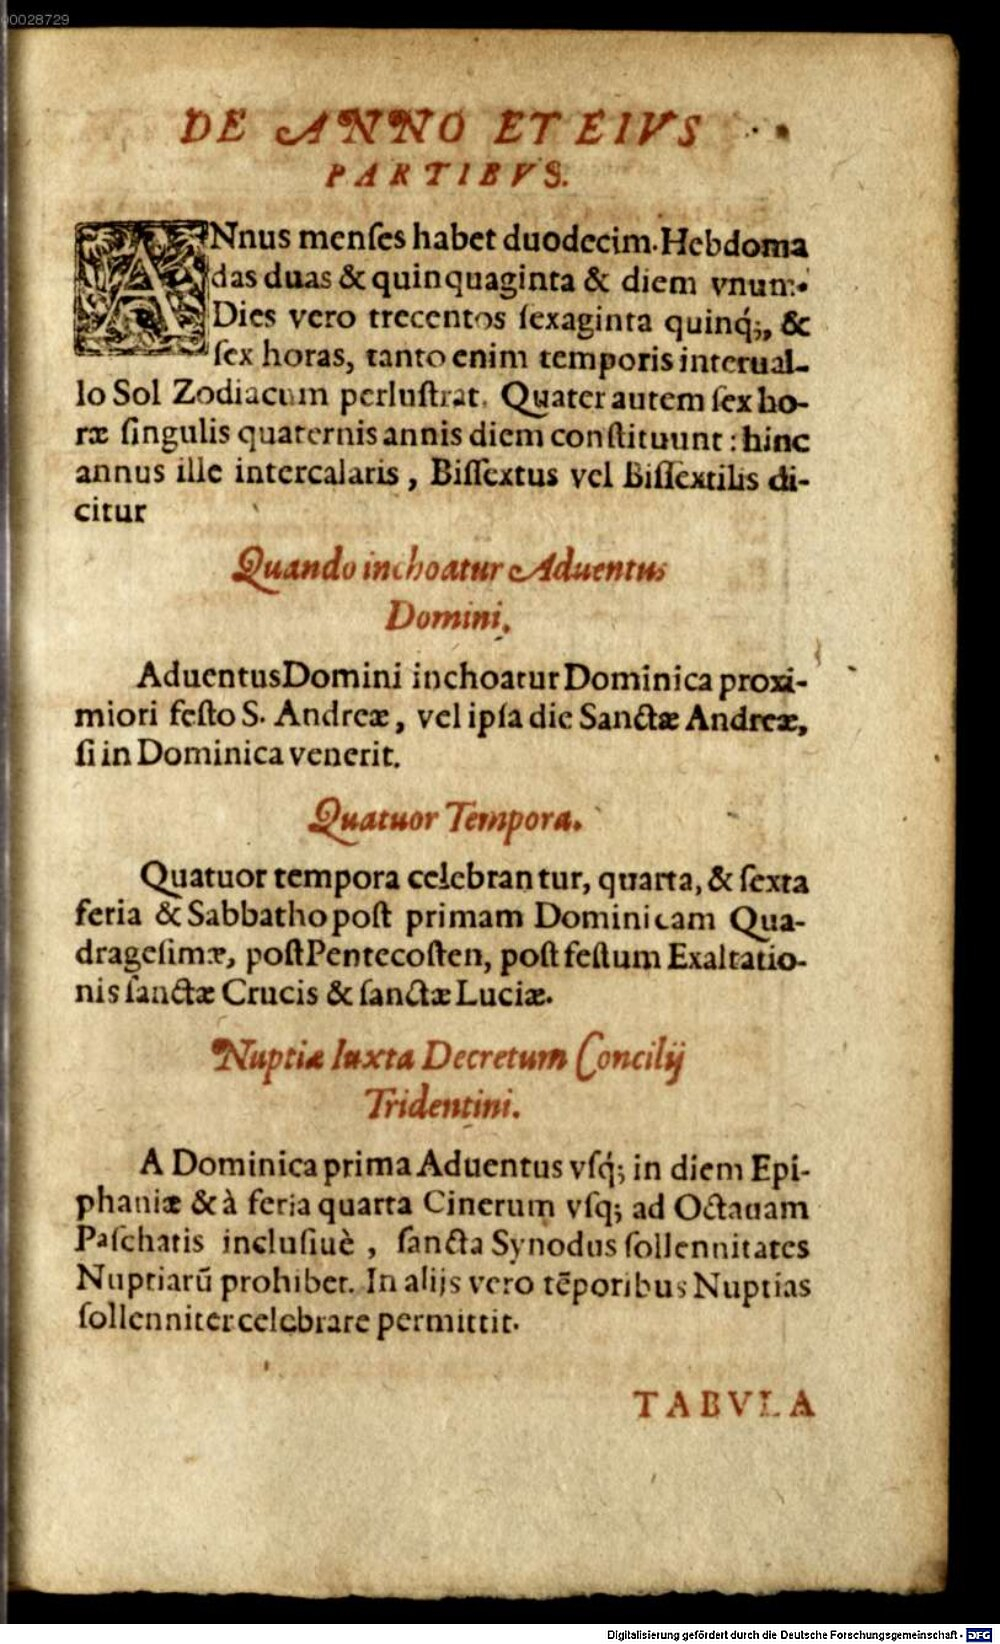 00028729
DE ANNO ET EIVS
PARTIBVS.
ANnus menſes habet duodecim. Hebdoma
das duas & quinquaginta & diem vnum:
Dies vero trecentos ſexaginta quinq́;, &
ſex horas, tanto enim temporis interual-
lo Sol Zodiacum perluſtrat. Quater autem ſex ho-
ræ ſingulis quaternis annis diem constituunt: hinc
annus ille intercalaris, Biſſextus vel Biſſextilis di-
citur
Quando inchoatur Aduentus
Domini.
Aduentus Domini inchoatur Dominica proxi-
miori feſto S. Andreæ, vel ipſa die Sanctæ Andreæ,
ſi in Dominica venerit.
Quatuor Tempora.
Quatuor tempora celebrantur, quarta, & ſexta
feria & Sabbatho poſt primam Dominicam Qua-
drageſimæ, poſt Pentecoſten, poſt feſtum Exaltatio-
nis ſanctæ Crucis & ſanctæ Luciæ.
Nuptiæ Iuxta Decretum Concilij
Tridentini.
A Dominica prima Aduentus vſq́; in diem Epi-
phaniæ & à feria quarta Cinerum vſq; ad Octauam
Paſchatis incluſiuè, ſancta Synodus ſollennitates
Nuptiarū prohibet. In alijs vero tēporibus Nuptias
ſollenniter celebrare permittit.
TABVLA
Digitalisierung gefördert durch die Deutsche Forschungsgemeinschaft - DFG